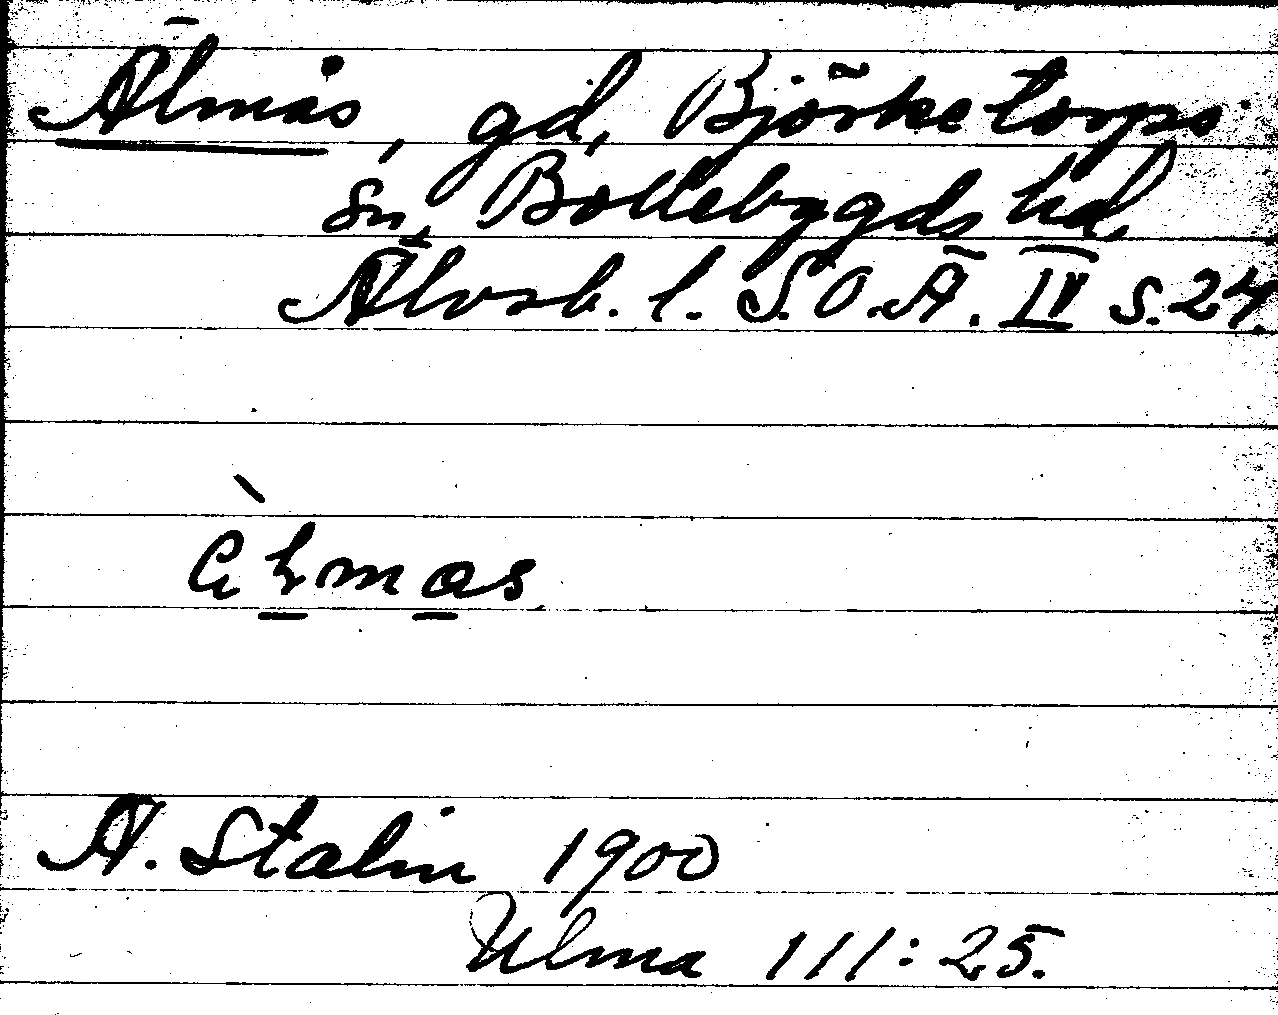 Älmås, gd, Björketorps
sn, Bollebygds hd,
Älvsb. l. S.O.Ä. IV s. 24.
A. Stalin 1900
Ulma 111:25.